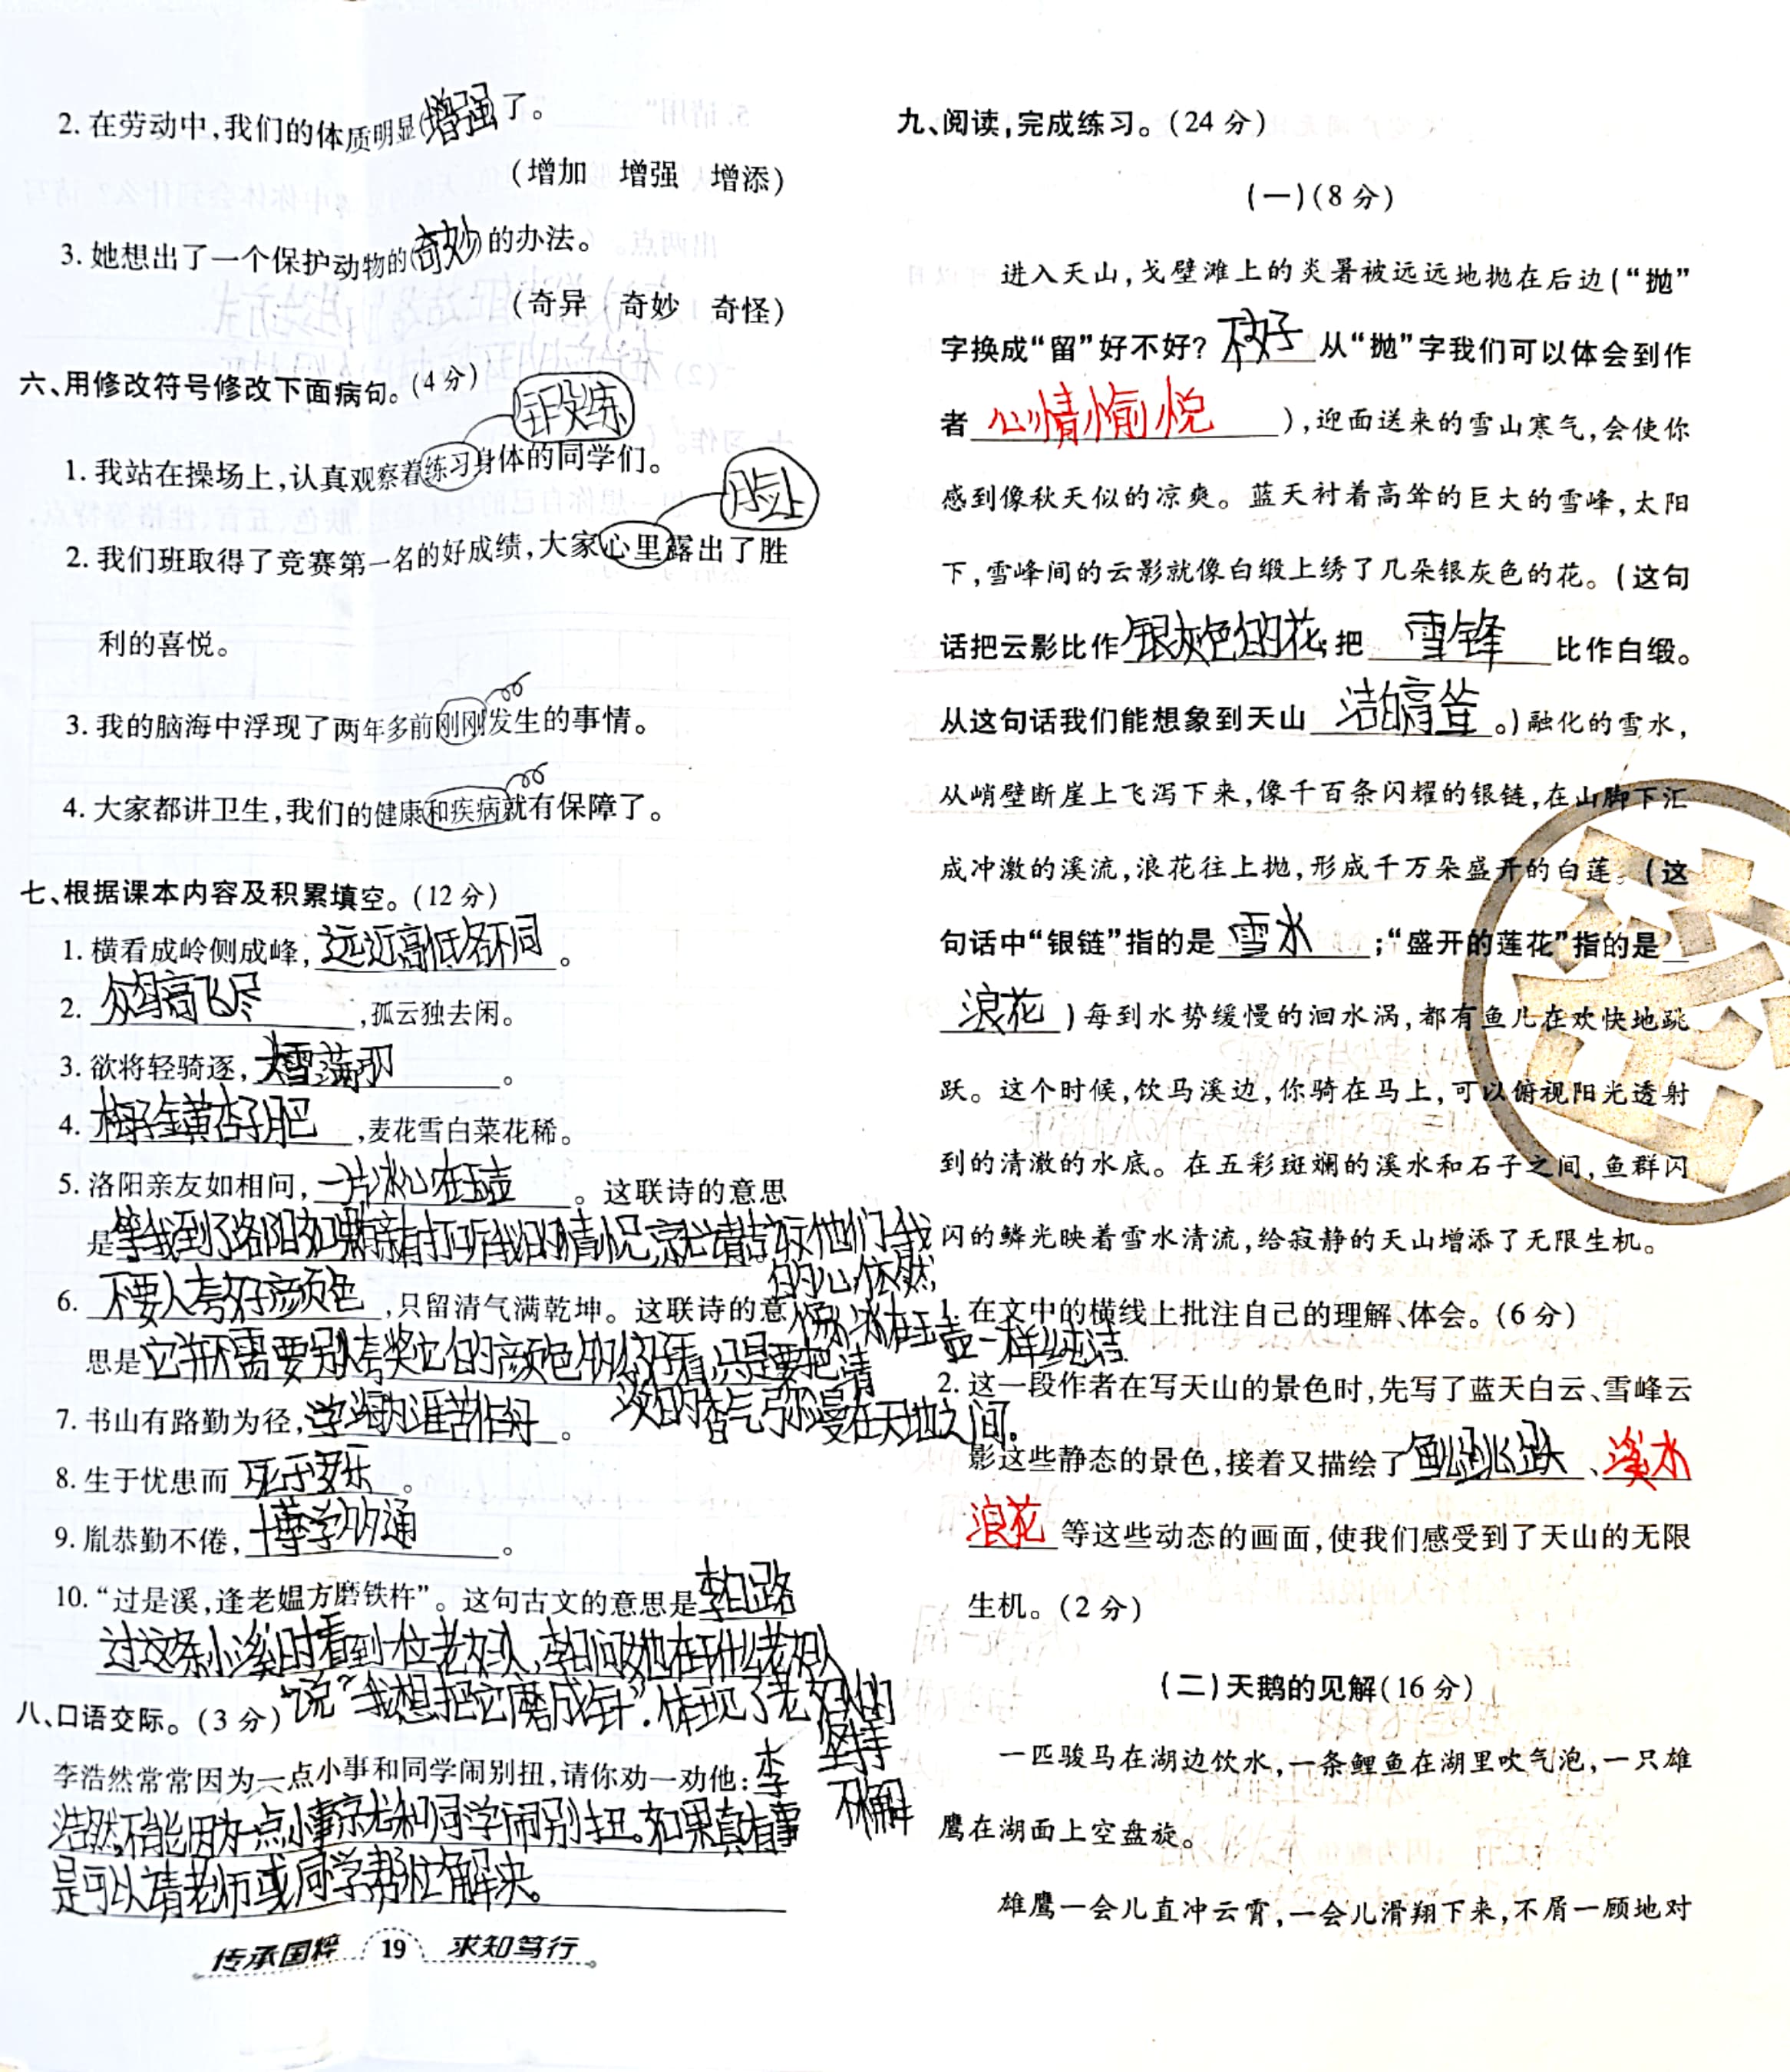 2. 在劳动中,我们的体质明显(增强)了。
(增加 增强 增添)
3. 她想出了一个保护动物的(奇妙)的办法。
(奇异 奇妙 奇怪)
六、用修改符号修改下面病句。(4分)
锻炼
1. 我站在操场上,认真观察着练习身体的同学们。
脸上
2. 我们班取得了竞赛第一名的好成绩,大家心里露出了胜
利的喜悦。
3. 我的脑海中浮现了两年多前刚刚发生的事情。
4. 大家都讲卫生,我们的健康和疾病就有保障了。
七、根据课本内容及积累填空。(12分)
1. 横看成岭侧成峰,远近高低各不同。
2. 众鸟高飞尽,孤云独去闲。
3. 欲将轻骑逐,大雪满刀。
4. 梅子金黄杏子肥,麦花雪白菜花稀。
5. 洛阳亲友如相问,一片冰心在玉壶。这联诗的意思
是等我到了洛阳如果亲友打听我的情况,就请告诉他们我
的心依然
像冰在玉壶一样纯洁
6. 不要人夸好颜色,只留清气满乾坤。这联诗的意
思是它并不需要别人夸奖它的颜色有多么好看,只是要把清
淡的香气弥漫在天地之间。
7. 书山有路勤为径,学海无涯苦作舟。
8. 生于忧患而死于安乐。
9. 胤恭勤不倦,博学多通。
10. “过是溪,逢老媪方磨铁杵”。这句古文的意思是李白路
过这条小溪时看到一位老妇人,李白问她在干什么老妇人
说“我想把它磨成针”.体现了老妇人的
坚持
不懈
八、口语交际。(3分)
李浩然常常因为一点小事和同学闹别扭,请你劝一劝他:李
浩然,不能因为一点小事就和同学闹别扭。如果真有事
是可以请老师或同学帮忙解决。
传承国粹 19 求知笃行
九、阅读,完成练习。(24分)
(一)(8分)
进入天山,戈壁滩上的炎暑被远远地抛在后边(“抛”
字换成“留”好不好? 不好 从“抛”字我们可以体会到作
者 心情愉悦 ),迎面送来的雪山寒气,会使你
感到像秋天似的凉爽。蓝天衬着高耸的巨大的雪峰,太阳
下,雪峰间的云影就像白缎上绣了几朵银灰色的花。(这句
话把云影比作银灰色的花;把 雪锋 比作白缎。
从这句话我们能想象到天山 洁白高耸 。)融化的雪水,
从峭壁断崖上飞泻下来,像千百条闪耀的银链,在山脚下汇
成冲激的溪流,浪花往上抛,形成千万朵盛开的白莲。(这
句话中“银链”指的是 雪水 ;“盛开的莲花”指的是
浪花 )每到水势缓慢的洄水涡,都有鱼儿在欢快地跳
跃。这个时候,饮马溪边,你骑在马上,可以俯视阳光透射
到的清澈的水底。在五彩斑斓的溪水和石子之间,鱼群闪
闪的鳞光映着雪水清流,给寂静的天山增添了无限生机。
1. 在文中的横线上批注自己的理解、体会。(6分)
2. 这一段作者在写天山的景色时,先写了蓝天白云、雪峰云
影这些静态的景色,接着又描绘了 鱼儿跳跃 、溪水
浪花 等这些动态的画面,使我们感受到了天山的无限
生机。(2分)
(二)天鹅的见解(16分)
一匹骏马在湖边饮水,一条鲤鱼在湖里吹气泡,一只雄
鹰在湖面上空盘旋。
雄鹰一会儿直冲云霄,一会儿滑翔下来,不屑一顾地对